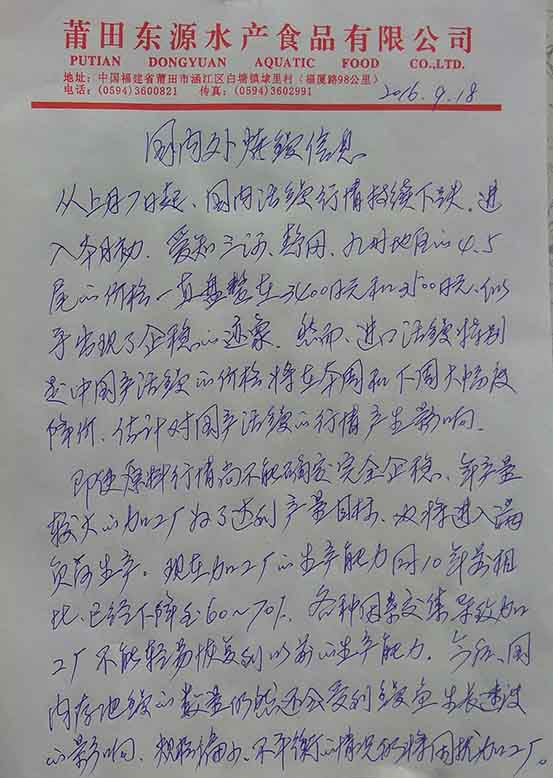 莆田东源水产食品有限公司
PUTIAN DONGYUAN AQUATIC FOOD CO.,LTD.
地址：中国福建省莆田市涵江区白塘镇埭里村（福厦路98公里）
电话：(0594)3600821 传真：(0594)3602991
2016.9.18
国内外烤鳗信息
从上月7日起、国内活鳗行情持续下跌。进
入本月初、爱知三河、静冈、九州地区的4.5
尾的价格一直盘整在3400日元和3500日元、似
乎出现了企稳的迹象。然而、进口活鳗特别
是中国产活鳗的价格将在本周和下周大幅度
降价、估计对国产活鳗的行情产生影响。
即使原料行情尚不能确定完全企稳、年产量
较大的加工厂为了达到产量目标、必将进入满
负荷生产。现在加工厂的生产能力同10年前相
比、已经下降至60～70%。各种因素交集导致加
工厂不能轻易恢复到以前的生产能力。今后、国
内存池鳗的数量仍然还会受到鳗鱼生长速度
的影响、规格偏小、不平衡的情况仍将困扰加工厂。